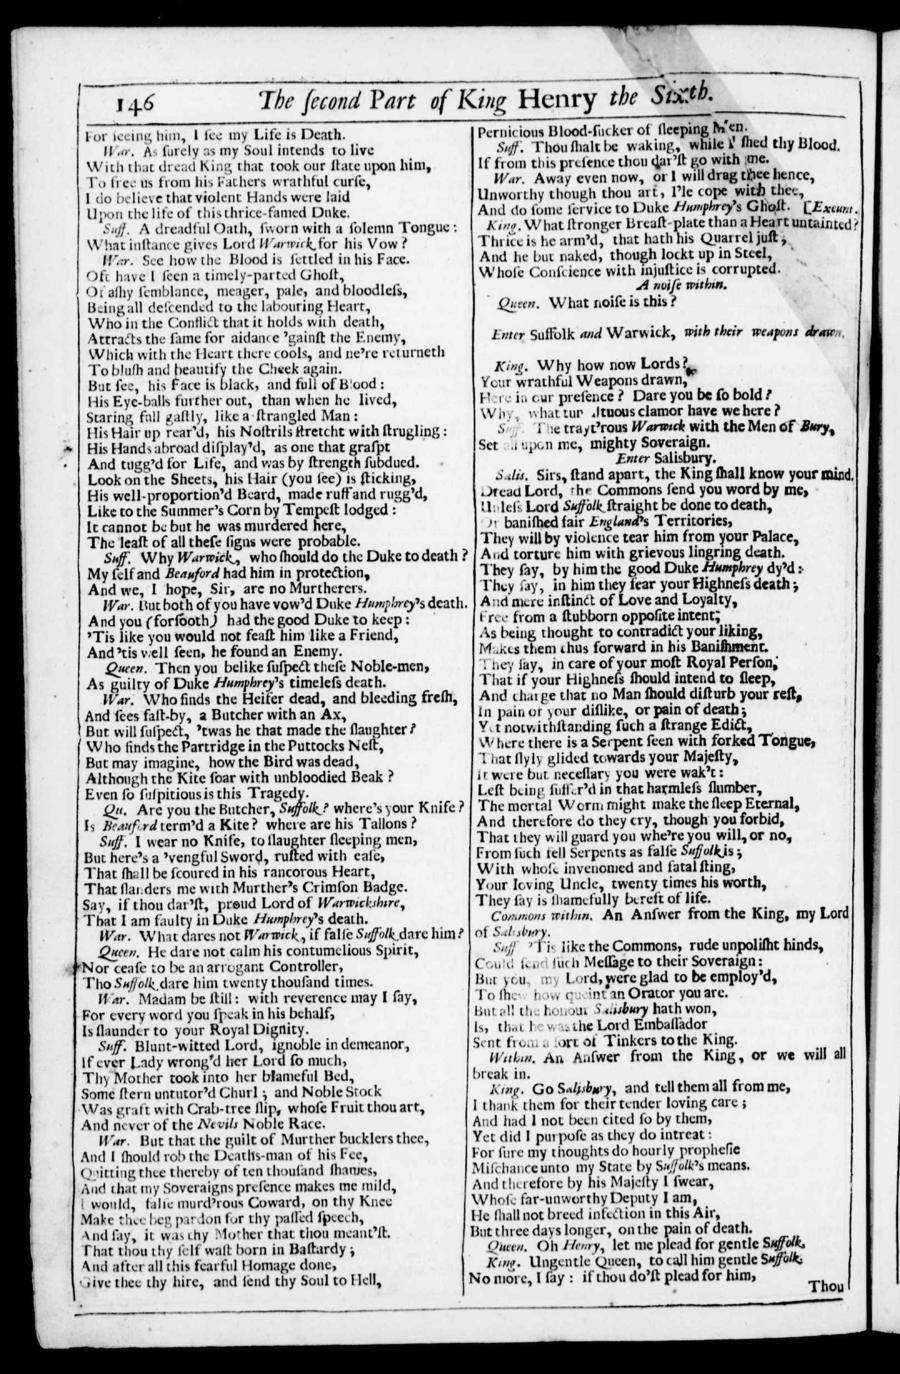 146 The ſecond Part of King Henry the Sixth.
For ſeeing him, I ſee my Life is Death.
War. As ſurely as my Soul intends to live
With that dread King that took our ſtate upon him,
To free us from his Fathers wrathful curſe,
I do believe that violent Hands were laid
Upon the life of this thrice-famed Duke.
Suff. A dreadful Oath, ſworn with a ſolemn Tongue:
What inſtance gives Lord Warwick for his Vow?
War. See how the Blood is ſettled in his Face.
Oft have I ſeen a timely-parted Ghoſt,
Of aſhy ſemblance, meager, pale, and bloodleſs,
Being all deſcended to the labouring Heart,
Who in the Conflict that it holds with death,
Attracts the ſame for aidance 'gainſt the Enemy,
Which with the Heart there cools, and ne're returneth
To bluſh and beautify the Cheek again.
But ſee, his Face is black, and full of Blood:
His Eye-balls further out, than when he lived,
Staring full gaſtly, like a ſtrangled Man:
His Hair up rear'd, his Noſtrils ſtretcht with ſtrugling:
His Hands abroad diſplay'd, as one that graſpt
And tugg'd for Life, and was by ſtrength ſubdued.
Look on the Sheets, his Hair (you ſee) is ſticking,
His well-proportion'd Beard, made ruff and rugg'd,
Like to the Summer's Corn by Tempeſt lodged:
It cannot be but he was murdered here,
The leaſt of all theſe ſigns were probable.
Suff. Why Warwick, who ſhould do the Duke to death?
My ſelf and Beauford had him in protection,
And we, I hope, Sir, are no Murtherers.
War. But both of you have vow'd Duke Humphrey's death.
And you (forſooth) had the good Duke to keep:
'Tis like you would not feaſt him like a Friend,
And 'tis well ſeen, he found an Enemy.
Queen. Then you belike ſuſpect theſe Noble-men,
As guilty of Duke Humphrey's timeleſs death.
War. Who finds the Heifer dead, and bleeding freſh,
And ſees faſt-by, a Butcher with an Ax,
But will ſuſpect, 'twas he that made the ſlaughter?
Who finds the Partridge in the Puttocks Neſt,
But may imagine, how the Bird was dead,
Although the Kite ſoar with unbloodied Beak?
Even ſo ſuſpitious is this Tragedy.
Qu. Are you the Butcher, Suffolk? where's your Knife?
Is Beauford term'd a Kite? where are his Tallons?
Suff. I wear no Knife, to ſlaughter ſleeping men,
But here's a 'vengful Sword, ruſted with eaſe,
That ſhall be ſcoured in his rancorous Heart,
That ſlanders me with Murther's Crimſon Badge.
Say, if thou dar'ſt, proud Lord of Warwickſhire,
That I am faulty in Duke Humphrey's death.
War. What dares not Warwick, if falſe Suffolk dare him?
Queen. He dare not calm his contumelious Spirit,
Nor ceaſe to be an arrogant Controller,
Tho Suffolk dare him twenty thouſand times.
War. Madam be ſtill: with reverence may I ſay,
For every word you ſpeak in his behalf,
Is ſlaunder to your Royal Dignity.
Suff. Blunt-witted Lord, ignoble in demeanor,
If ever Lady wrong'd her Lord ſo much,
Thy Mother took into her blameful Bed,
Some ſtern untutor'd Churl; and Noble Stock
Was graft with Crab-tree ſlip, whoſe Fruit thou art,
And never of the Nevils Noble Race.
War. But that the guilt of Murther bucklers thee,
And I ſhould rob the Deaths-man of his Fee,
Quitting thee thereby of ten thouſand ſhames,
And that my Soveraigns preſence makes me mild,
I would, falſe murd'rous Coward, on thy Knee
Make thee beg pardon for thy paſſed ſpeech,
And ſay, it was thy Mother that thou meant'ſt.
That thou thy ſelf waſt born in Baſtardy;
And after all this fearful Homage done,
Give thee thy hire, and ſend thy Soul to Hell,
Pernicious Blood-ſucker of ſleeping Men.
Suff. Thou ſhalt be waking, while I ſhed thy Blood.
If from this preſence thou dar'ſt go with me.
War. Away even now, or I will drag thee hence,
Unworthy though thou art, I'le cope with thee,
And do ſome ſervice to Duke Humphrey's Ghoſt. [Exeunt.
King. What ſtronger Breaſt-plate than a Heart untainted?
Thrice is he arm'd, that hath his Quarrel juſt;
And he but naked, though lockt up in Steel,
Whoſe Conſcience with injuſtice is corrupted.
A noiſe within.
Queen. What noiſe is this?
Enter Suffolk and Warwick, with their weapons drawn.
King. Why how now Lords?
Your wrathful Weapons drawn,
Here in our preſence? Dare you be ſo bold?
Why, what tumultuous clamor have we here?
Suff. The trayt'rous Warwick with the Men of Bury,
Set all upon me, mighty Soveraign.
Enter Salisbury.
Salis. Sirs, ſtand apart, the King ſhall know your mind.
Dread Lord, the Commons ſend you word by me,
Unleſs Lord Suffolk ſtraight be done to death,
Or baniſhed fair England's Territories,
They will by violence tear him from your Palace,
And torture him with grievous lingring death.
They ſay, by him the good Duke Humphrey dy'd:
They ſay, in him they fear your Highneſs death;
And mere inſtinct of Love and Loyalty,
Free from a ſtubborn oppoſite intent,
As being thought to contradict your liking,
Makes them thus forward in his Baniſhment.
They ſay, in care of your moſt Royal Perſon,
That if your Highneſs ſhould intend to ſleep,
And charge that no Man ſhould diſturb your reſt,
In pain of your diſlike, or pain of death;
Yet notwithſtanding ſuch a ſtrange Edict,
Where there is a Serpent ſeen with forked Tongue,
That ſlyly glided towards your Majeſty,
It were but neceſſary you were wak't:
Leſt being ſuffer'd in that harmleſs ſlumber,
The mortal Worm might make the ſleep Eternal,
And therefore do they cry, though you forbid,
That they will guard you whe're you will, or no,
From ſuch fell Serpents as falſe Suffolk is;
With whoſe invenomed and fatal ſting,
Your loving Uncle, twenty times his worth,
They ſay is ſhamefully bereft of life.
Commons within. An Anſwer from the King, my Lord
of Salisbury.
Suff 'Tis like the Commons, rude unpoliſht hinds,
Could ſend ſuch Meſſage to their Soveraign:
But you, my Lord, were glad to be employ'd,
To ſhew how queint an Orator you are.
But all the honour Salisbury hath won,
Is, that he was the Lord Embaſſador
Sent from a ſort of Tinkers to the King.
Within. An Anſwer from the King, or we will all
break in.
King. Go Salisbury, and tell them all from me,
I thank them for their tender loving care;
And had I not been cited ſo by them,
Yet did I purpoſe as they do intreat:
For ſure my thoughts do hourly propheſie
Miſchance unto my State by Suffolk's means.
And therefore by his Majeſty I ſwear,
Whoſe far-unworthy Deputy I am,
He ſhall not breed infection in this Air,
But three days longer, on the pain of death.
Queen. Oh Henry, let me plead for gentle Suffolk.
King. Ungentle Queen, to call him gentle Suffolk.
No more, I ſay: if thou do'ſt plead for him,
Thou